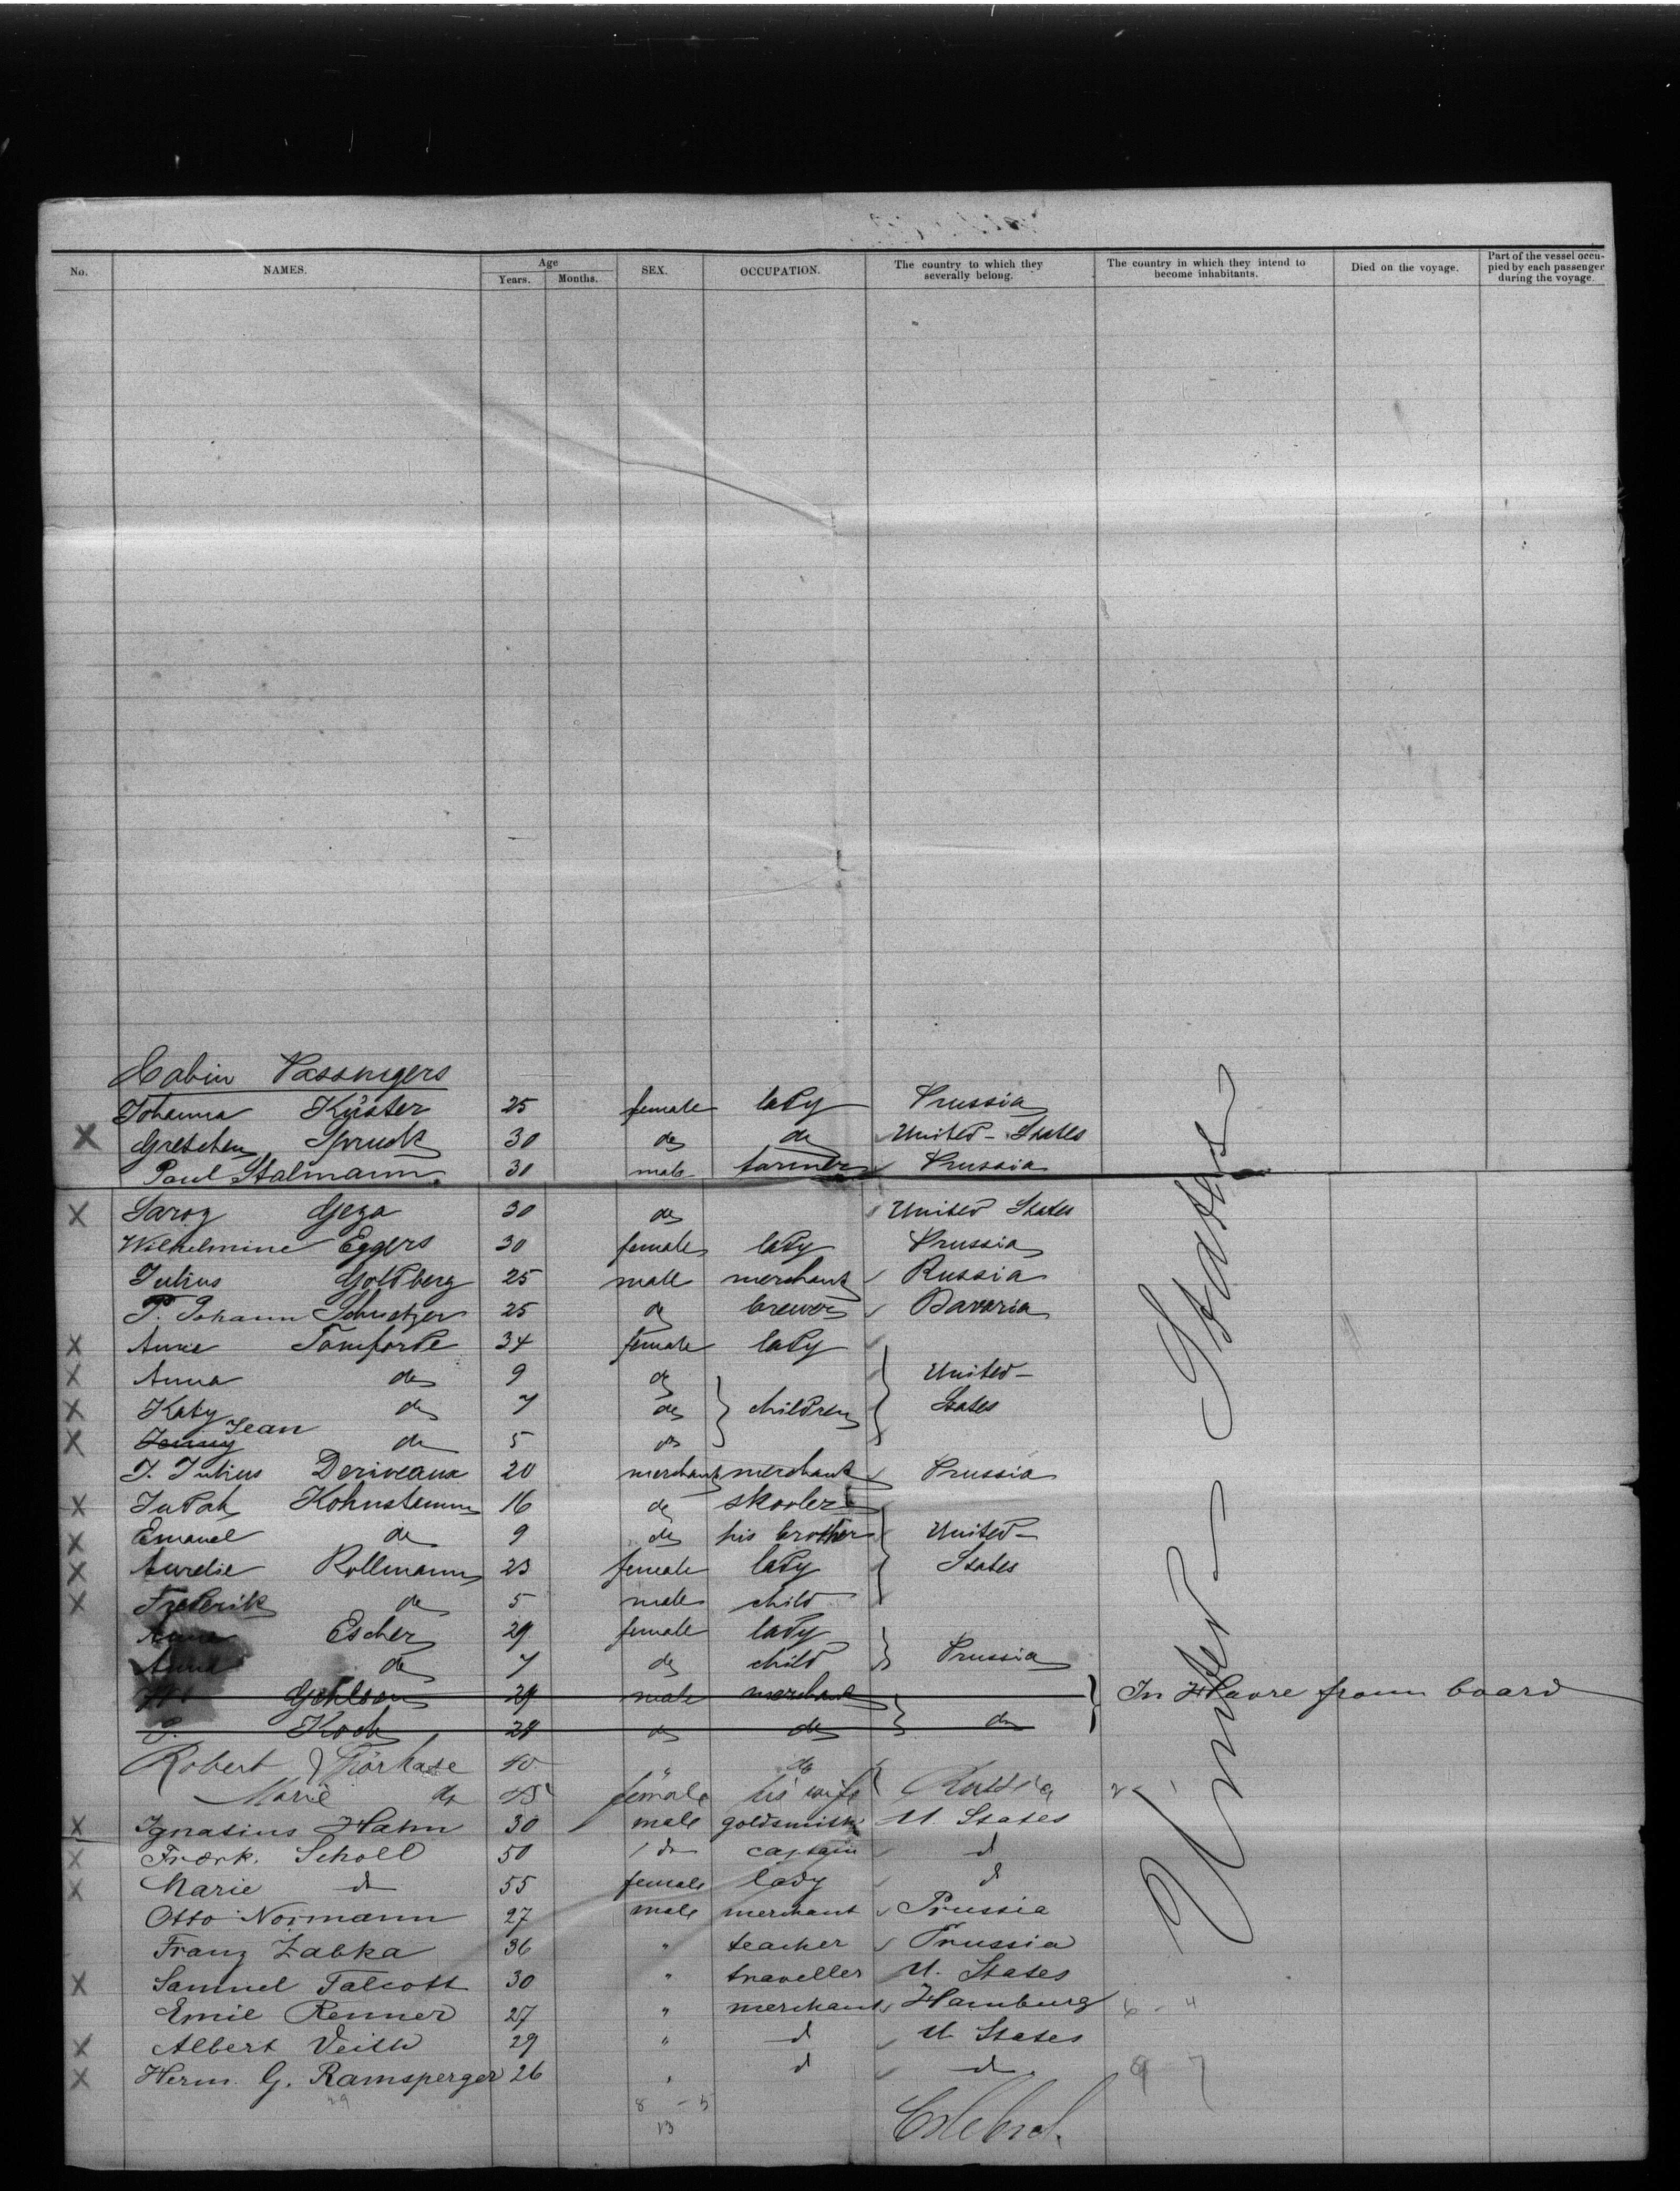 No. NAMES. Age Years. Months. SEX. OCCUPATION. The country to which they severally belong. The country in which they intend to become inhabitants. Died on the voyage. Part of the vessel occupied by each passenger during the voyage.
Cabin Passengers
Johanna Küster 25 female lady Prussia
X Gretchen Spruck 30 do do United-States
Paul Stalmann 30 male farmer Prussia
X Saroz Geza 30 do United States
Wilhelmine Eggers 30 female lady Prussia
Julius Goldberg 25 male merchant Russia
P. Johann Schnetzer 25 do brewer Bavaria
X Anna Tomforde 34 female lady
X Anna do 9 do United-
X Katy do 7 do children States
X Jenny Jean do 5 do
J. Julius Deriveaux 20 merchant merchant Prussia
X Judah Kohnstamm 16 do skooler
X Emanuel do 9 do his brother United-
X Aurelie Rollmann 23 female lady States
X Frederik do 5 male child
Anna Escher 29 female lady
Anna do 7 do child Prussia
Gehlsen 29 male merchant In Havre from board
Koch 28 do do do
Robert 40 " do
Marie do 45 female his wife Russia
X Ignatius Hahn 30 male goldsmith U. States
X Fredrk. Scholl 50 do captain d
X Marie d 55 female lady d
Otto Normann 27 male merchant Prussia
Franz Zabka 36 " teacher Prussia
X Samuel Talcott 30 " traveller U. States
Emil Renner 27 " merchant Hamburg 6 - 4
X Albert Veith 29 " d U States
X Herm. G. Ramsperger 26 " d d 9 7
29 8 - 5
13
United States